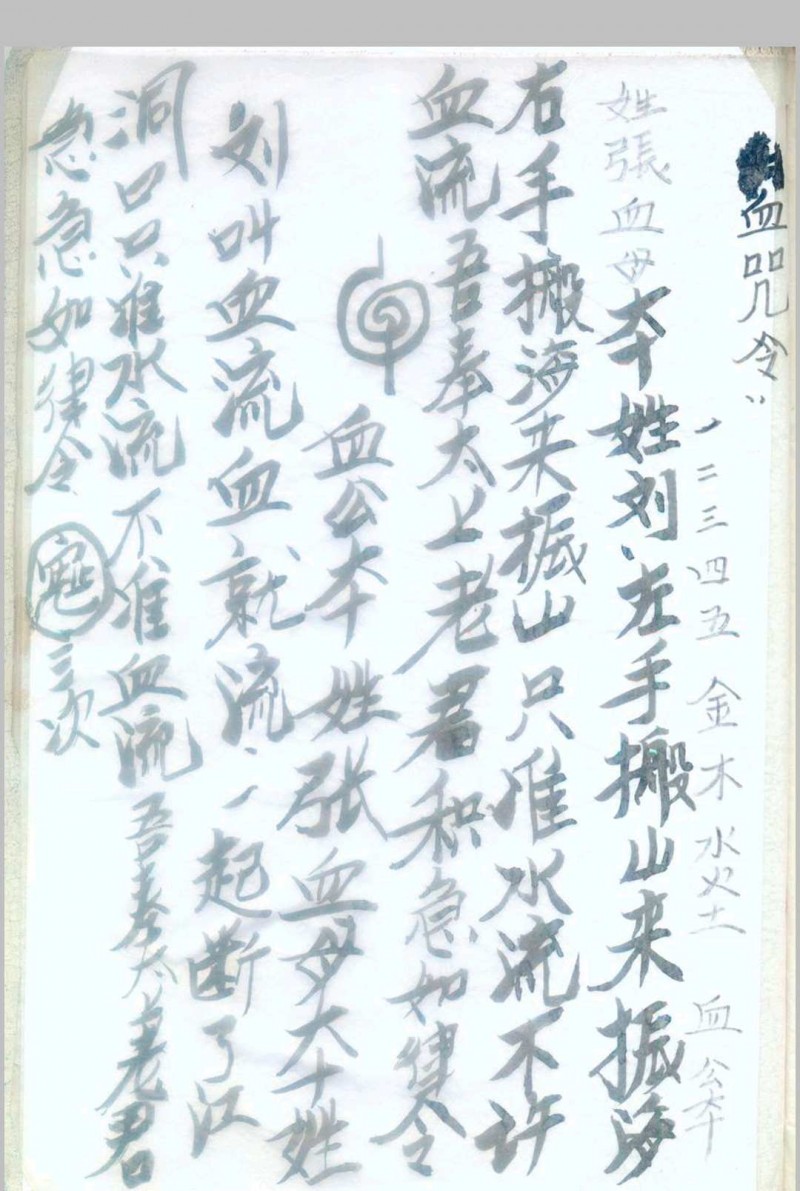 血咒令
一二三四五 金木水火土 血公本
姓張血母本姓刘左手搬山来振海
右手搬海来振山 只准水流不许
血流吾奉太上老君 积急如律令
血公本姓张血母本姓
刘叫血流血就流一起断了江
洞口只准水流不准血流 吾奉太上老君
急急如律令 三次